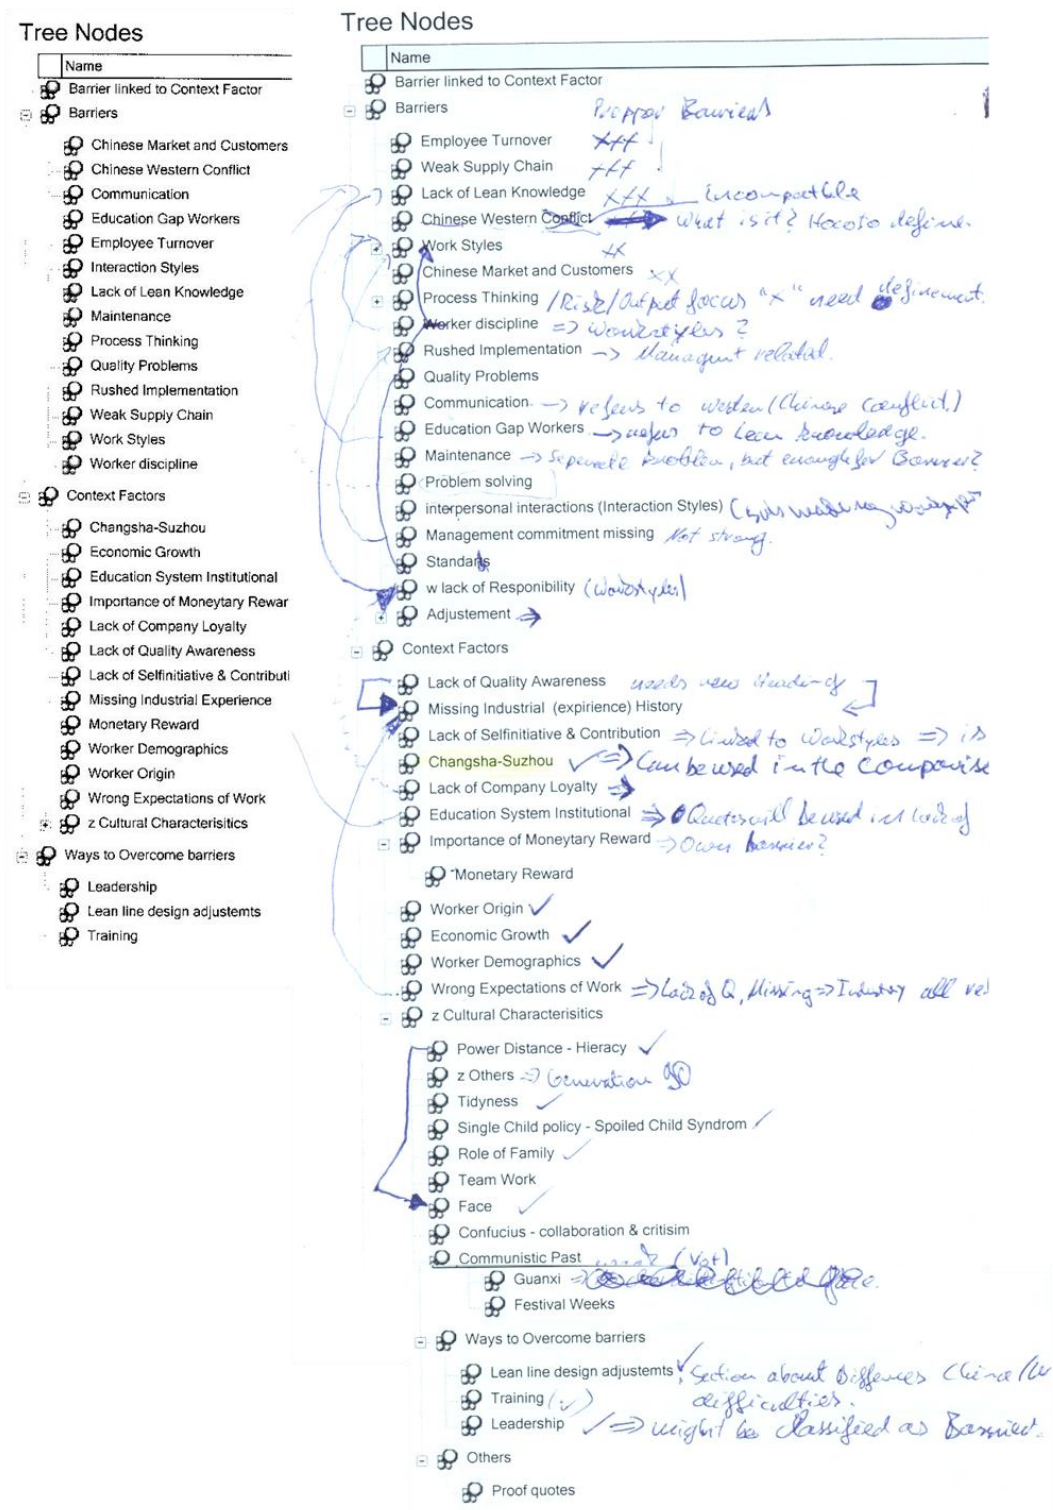 Tree Nodes
Name
Barrier linked to Context Factor
Barriers
Chinese Market and Customers
Chinese Western Conflict
Communication
Education Gap Workers
Employee Turnover
Interaction Styles
Lack of Lean Knowledge
Maintenance
Process Thinking
Quality Problems
Rushed Implementation
Weak Supply Chain
Work Styles
Worker discipline
Context Factors
Changsha-Suzhou
Economic Growth
Education System Institutional
Importance of Moneytary Rewar
Lack of Company Loyalty
Lack of Quality Awareness
Lack of Selfinitiative & Contributi
Missing Industrial Experience
Monetary Reward
Worker Demographics
Worker Origin
Wrong Expectations of Work
z Cultural Characterisitics
Ways to Overcome barriers
Leadership
Lean line design adjustemts
Training
Tree Nodes
Name
Barrier linked to Context Factor
Barriers
Employee Turnover
Weak Supply Chain
Lack of Lean Knowledge incompatible
Chinese Western Conflict What is it? define.
Work Styles
Chinese Market and Customers xx
Process Thinking /Risk/Output focus "x" need definement.
Worker discipline => workstyles?
Rushed Implementation -> related.
Quality Problems
Communication -> refers to (Chinese Conflict.)
Education Gap Workers -> refers to Lean knowledge.
Maintenance -> Separate problem, but enough for Barrier?
Problem solving
interpersonal interactions (Interaction Styles)
Management commitment missing Not strong.
Standarts
w lack of Responibility (workstyles)
Adjustement =>
Context Factors
Lack of Quality Awareness needs new
Missing Industrial (expirience) History
Lack of Selfinitiative & Contribution => linked to Workstyles => is
Changsha-Suzhou ✓ => Can be used in the Comparise
Lack of Company Loyalty =>
Education System Institutional => Quotes will be used in lack of
Importance of Moneytary Reward => Own barrier?
Monetary Reward
Worker Origin ✓
Economic Growth ✓
Worker Demographics ✓
Wrong Expectations of Work => Lack of Q, Missing => Industry all
z Cultural Characterisitics
Power Distance - Hieracy ✓
z Others => Generation 90
Tidyness ✓
Single Child policy - Spoiled Child Syndrom ✓
Role of Family ✓
Team Work
Face ✓
Confucius - collaboration & critisim
Communistic Past
Guanxi
Festival Weeks
Ways to Overcome barriers
Lean line design adjustemts ✓ Section about China
difficulties.
Training (✓)
Leadership ✓ => might be classified as Barrier.
Others
Proof quotes